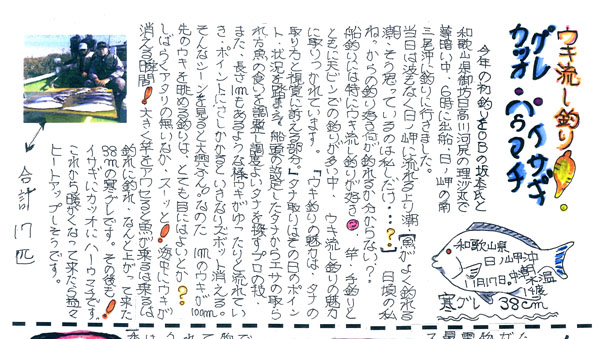 ウキ流し釣り
グレ・イサギ
カツオ・ハマチ
今年の初釣りをOBの坂本氏と
和歌山県御坊日高川河尻の理沙丸で
薄暗い中、6時に出船、日ノ岬の南
三尾沖へ釣りに行きました。
当日は汐なく日ノ岬に流れる上り潮【魚がよく釣れる
潮・そう思っているのは私だけ・・・?】日頃の私
ね。からの釣り好きが釣れるか分らない?
船釣りには特にウキ流し釣りが好き 竿・手釣りと
ともに天ビンでの釣りが多い中、ウキ流し釣りの魅力
に取りつかれています。『ウキ釣りの魅力は、タナの
取り方と視覚に訴える部分。』タナ取りはその日のポイン
ト・状況を踏まえて船頭の設定したタナからエサの取ら
れ方魚の食いを調整し調度よいタナを探すプロの技
また、長さ1mもあるような棒ウキがゆったりと流れてい
き、ポイントにさしかかるといきなりズボッ!消える。
そんなシーンを見ると大興ふんなのだ 1mのウキが100m
先のウキを眺める釣りは、とても目にはよいとか?
しばらくアタリの無いなか、スーッと!海中にウキが
消える瞬間!大きく竿をアワセると魚が乗るは乗るは
釣れに釣れ、なんと上がって来た
38cmの寒グレです。その後も!
イサギにカツオにハーウマチです。
これから暖かくなって来たら益々
ヒートアップしそうです。
合計17匹
和歌山県
日ノ岬沖
11月17日、中潮
水温
寒グレ 38cm